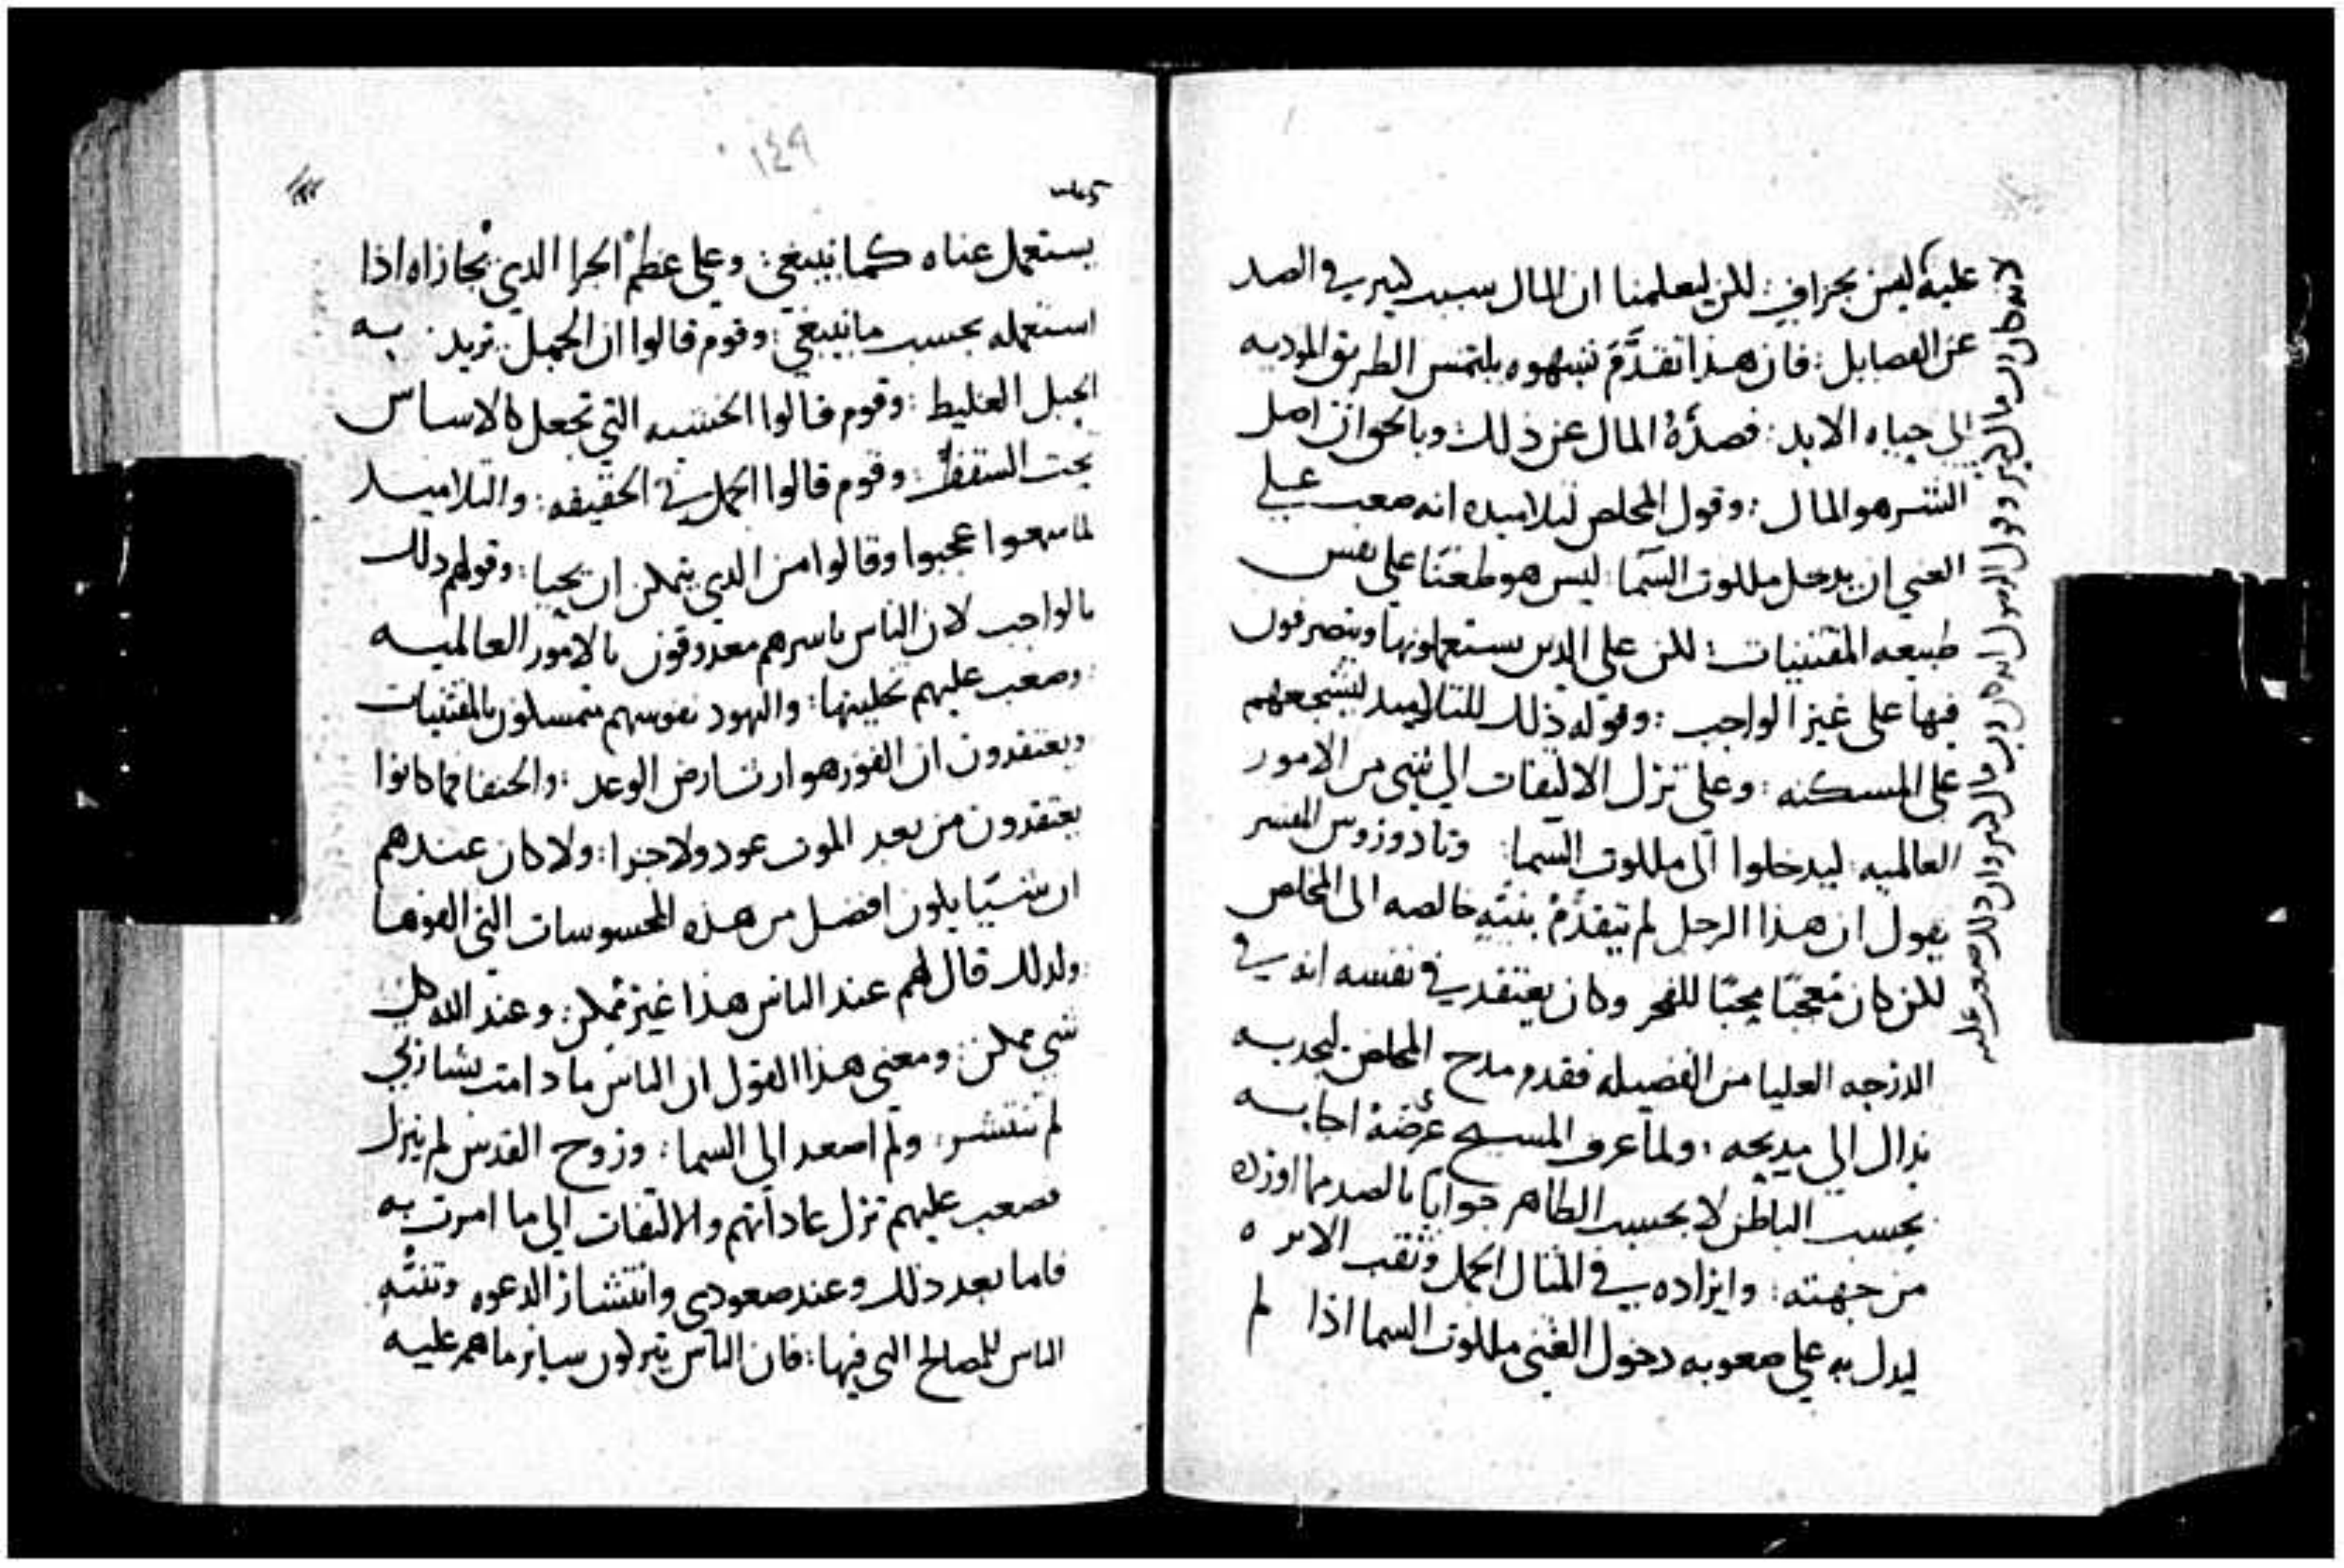 عليه ليس بجزاف : لكن ليعلمنا ان المال سبب كبير في الصد
عن الفضايل : فان هذا تقدم بشهوه يلتمس الطريق الموديه
الى حياه الابد : فصده المال عن ذلك : وبالحق ان اصل
الشر هو المال : وقول المخلص لتلاميده انه صعب على
الغني ان يدخل ملكوت السما : ليس هو طعنا على نفس
طبيعه المقتنيات : لكن على الدين يستعملونها ويتصرفون
فيها على غير الواجب : وقوله ذلك للتلاميد ليشجعهم
على المسكنه : وعلى ترك الالتفات الى شي من الامور
العالميه : ليدخلوا الى ملكوت السما : وتادوروس المفسر
يقول ان هذا الرجل لم يتقدم بنيه خالصه الى المخلص
لكن كان معجبا محبا للفخر وكان يعتقد في نفسه انه في
الدرجه العليا من الفضيله فقدم مدح المخلص ليجدبه
بذاك الى مديحه : ولما عرف المسيح غرضه اجابه
بحسب الباطن لا بحسب الظاهر جوابا بالصد مما اورده
من جهته : وايراده في المثال الجمل وثقب الابره
ليدل به على صعوبه دخول الغني ملكوت السما اذا لم
لانه كان له مال كثير وقول الرسول انه كان دو مال كثير وان ذلك صعب عليه
١٤٩
يستعمل غناه كما ينبغي : وعلى عظم الجزا الدي يجازاه اذا
استعمله بحسب ما ينبغي : وقوم قالوا ان الجمل يريد به
الحبل الغليظ : وقوم قالوا الخشبه التي تجعل كالاساس
تحت السقف : وقوم قالوا الجمل في الحقيقه : والتلاميد
لما سمعوا عجبوا وقالوا من الدي يتمكن ان يحيا : وقولهم دلك
بالواجب لان الناس باسرهم معدوقون بالامور العالميه
وصعب عليهم تخليتها : واليهود نفوسهم متمسكون بالمقتنيات
ويعتقدون ان الفوز هو ارث ارض الوعد : والحنفا فما كانوا
يعتقدون من بعد الموت عود ولا جزا : ولا كان عندهم
ان شيا يكون افضل من هذه المحسوسات التي الفوها
ولدلك قال لهم عند الناس هذا غير ممكن : وعند الله كل
شي ممكن : ومعنى هذا القول ان الناس ما دامت بشارتي
لم تنتشر : ولم اصعد الى السما : وروح القدس لم ينزل
فصعب عليهم ترك عاداتهم والالتفات الى ما امرت به
فاما بعد ذلك وعند صعودي وانتشار الدعوه وتنبه
الناس للمصالح التي فيها : فان الناس يتركون ساير ما هم عليه